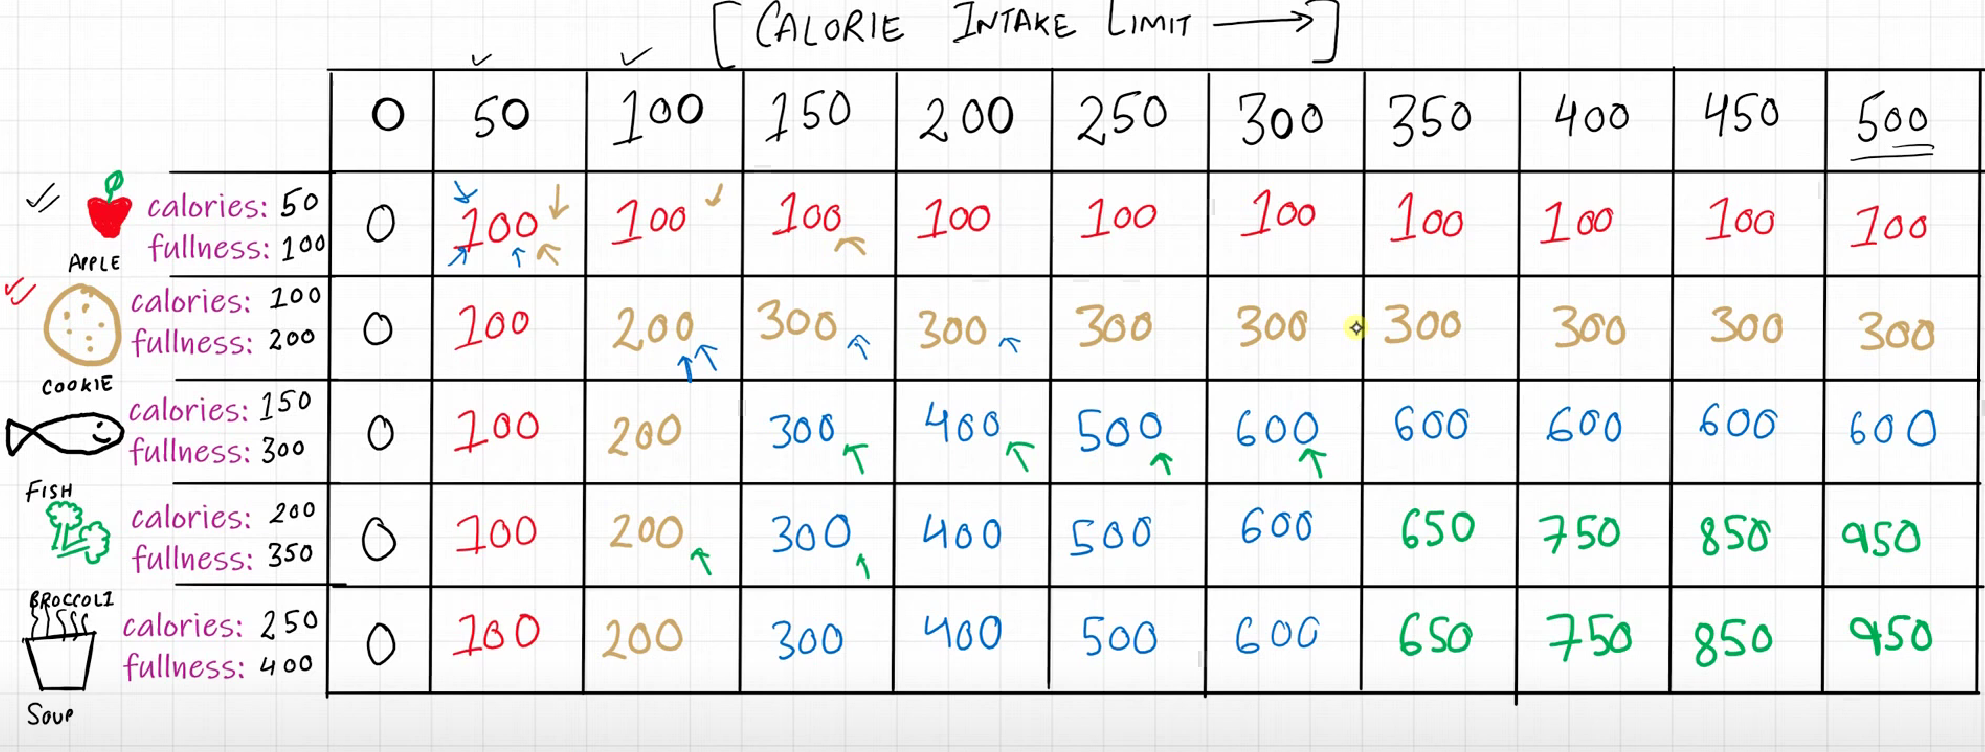 [ CALORIE INTAKE LIMIT → ]
0 50 100 150 200 250 300 350 400 450 500
calories: 50
fullness: 100
APPLE
0 100 100 100 100 100 100 100 100 100 100
calories: 100
fullness: 200
COOKIE
0 100 200 300 300 300 300 300 300 300 300
calories: 150
fullness: 300
FISH
0 100 200 300 400 500 600 600 600 600 600
calories: 200
fullness: 350
BROCCOLI
0 100 200 300 400 500 600 650 750 850 950
calories: 250
fullness: 400
SOUP
0 100 200 300 400 500 600 650 750 850 950